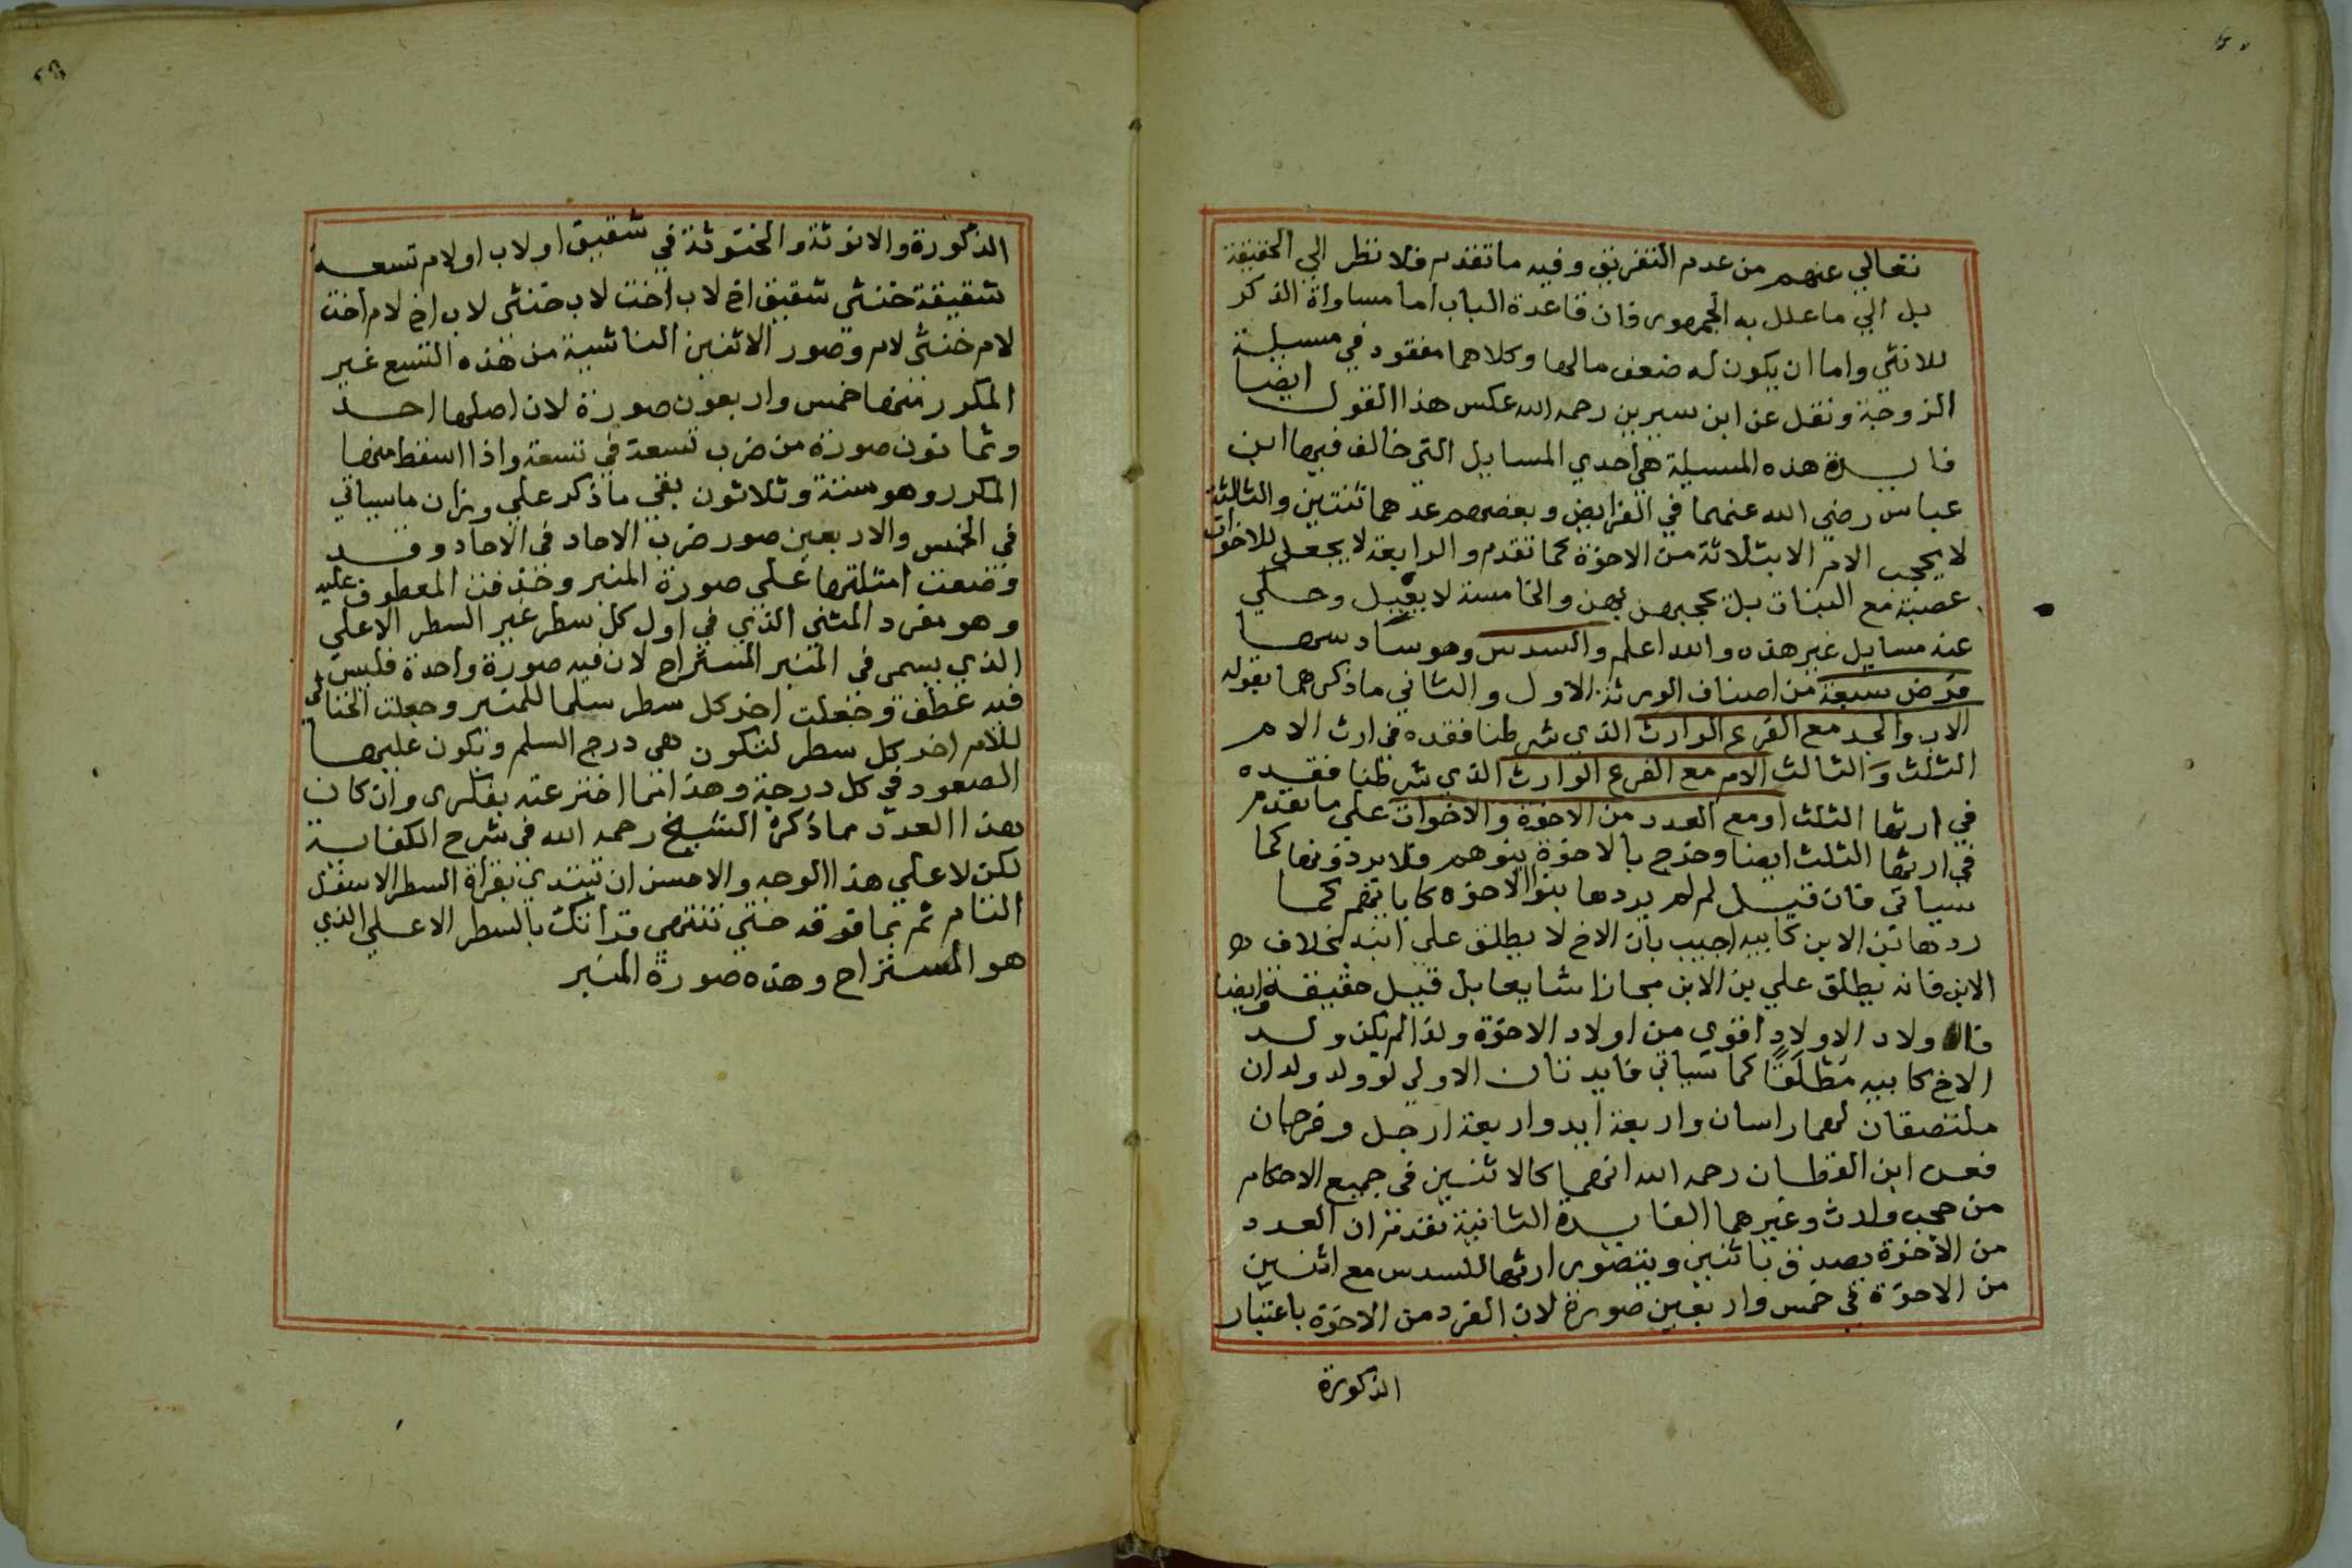 تعالي عنهم من عدم التفريق وفيه ما تقدم فلا نظر الي الحقيقة
بل الي ما علل به الجمهور فان قاعدة الباب اما مساواة الذكر
للانثي واما ان يكون له ضعف مالها وكلاهما مفقود في مسيلة
الزوجة ونقل عن ابن سيرين رحمه الله عكس هذا القول ايضا
فايدة هذه المسيلة هي احدي المسايل التي خالف فيها ابن
عباس رضي الله عنهما في الفرايض وبعضهم عدهما ثنتين والثالثة
لا يحجب الام الا بثلاثة من الاخوة كما تقدم والرابعة لا يجعل للاخوات
عصبة مع البنات بل يحجبهن بهن والخامسة لا يعيل وحكي
عنه مسايل غير هذه والله اعلم والسدس وهو سادسها
فرض سبعة من اصناف الورثة الاول والثاني ما ذكرهما بقوله
الاب والجد مع الفرع الوارث الذي شرطنا فقده في ارث الام
الثلث والثالث الام مع الفرع الوارث الذي شرطنا فقده
في ارثها الثلث او مع العدد من الاخوة والاخوات علي ما تقدم
في ارثها الثلث ايضا وخرج بالاخوة بنوهم فلا يردونها كما
سياتي فان قيل لم لم يردها بنوا الاخوة كابايهم كما
ردها ابن الابن كابيه اجيب بان الاخ لا يطلق علي ابنه بخلاف
الابن فانه يطلق علي بن الابن مجازا شايعا بل قيل حقيقة وايضا
فالاولاد الاولاد اقوي من اولاد الاخوة ولذا لم يكن ولد
الاخ كابيه مطلقا كما سياتي فايدتان الاولي لو ولد ولدان
ملتصقان لهما راسان واربعة ايد واربعة ارجل وفرجان
فعن ابن القطان رحمه الله انهما كالاثنين في جميع الاحكام
من حجب وارث وغيرهما الفايدة الثانية تقدم ان العدد
من الاخوة يصدق باثنين ويتصور ارثها للسدس مع اثنين
من الاخوة في خمس واربعين صورة لان الفرد من الاخوة باعتبار
الذكورة
الذكورة والانوثة والخنوثة في شقيق او لاب او لام تسعه
شقيقة خنثى شقيق اخ لاب اخت لاب خنثى لاب اخ لام اخت
لام خنثى لام وصور الاثنين الناشية من هذه التسع غير
المكرر منها خمس واربعون صورة لان اصلها احد
وثمانون صورة من ضرب تسعة في تسعة واذا اسقط منها
المكرر وهو ستة وثلاثون بقي ما ذكر علي وزان ما سياتي
في الخمس والاربعين صور ضرب الاحاد في الاحاد وقد
وضعت امثلتها علي صورة المنبر وحذفت المعطوف عليه
وهو مفرد المثنى الذي في اول كل سطر غير السطر الاعلي
الذي يسمى في المنبر المستراح لان فيه صورة واحدة فليس
فيه عطف وجعلت اخر كل سطر سلما للمنبر وجعلت الخناثى
للام اخر كل سطر لتكون هي درج السلم ويكون عليها
الصعود في كل درجة وهذا انما اخترعته بفكري وان كان
هذا العدد مما ذكره الشيخ رحمه الله في شرح الكفاية
لكن لا علي هذا الوجه والاحسن ان تبتدي بقراة السطر الاسفل
التام ثم بما فوقه حتي تنتهي قراتك بالسطر الاعلي الذي
هو المستراح وهذه صورة المنبر